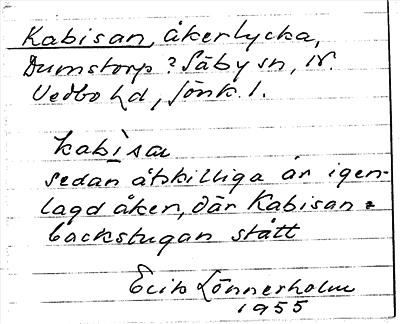 Kabisan, åkerlycka,
Dumstorp? Säby sn, N.
Vedbo hd, Jönk. l.
kabisa
sedan åtskilliga år igen-
lagd åker, där Kabisan =
backstugan stått
Erik Lönnerholm
1955